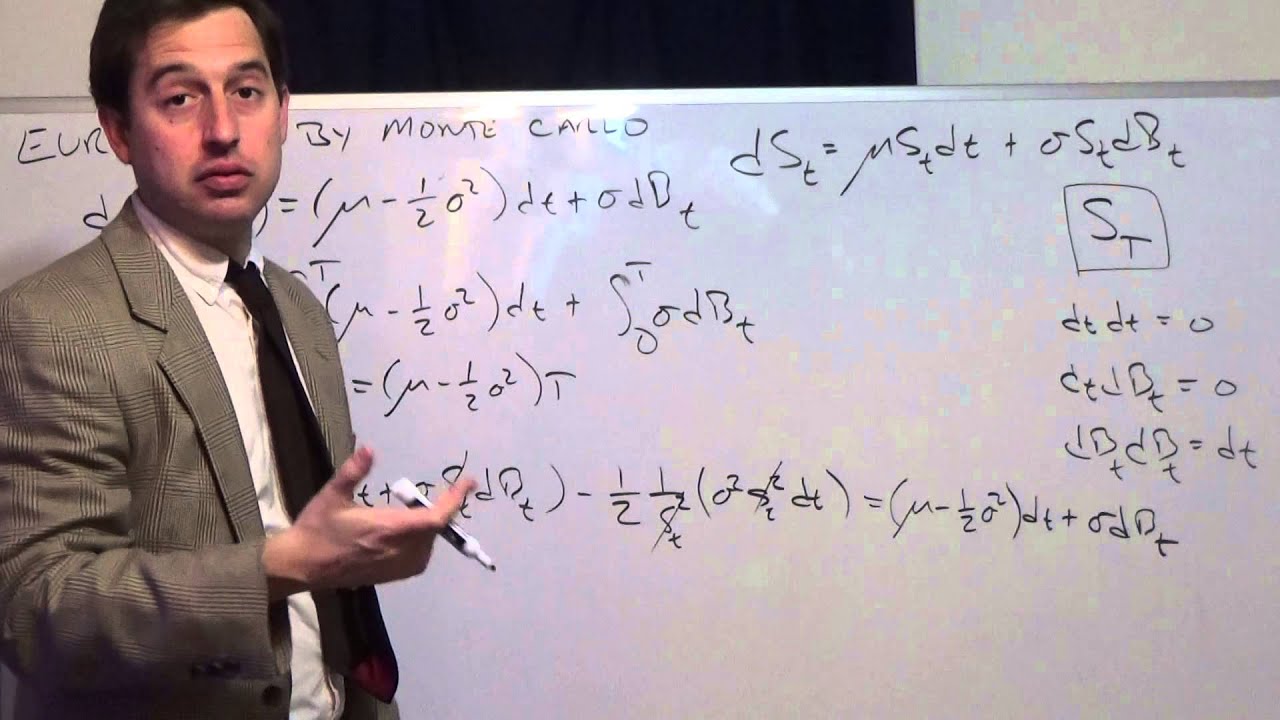 EUR BY MONTE CARLO
dS_t = μS_t dt + σS_t dB_t
d ) = (μ - 1/2 σ²) dt + σ dB_t
S_T
∫^T (μ - 1/2 σ²) dt + ∫_0^T σ dB_t
dt dt = 0
= (μ - 1/2 σ²) T
dt dB_t = 0
dB_t dB_t = dt
t + σ S_t dB_t ) - 1/2 1/S_t² (σ² S_t² dt) = (μ - 1/2 σ²) dt + σ dB_t